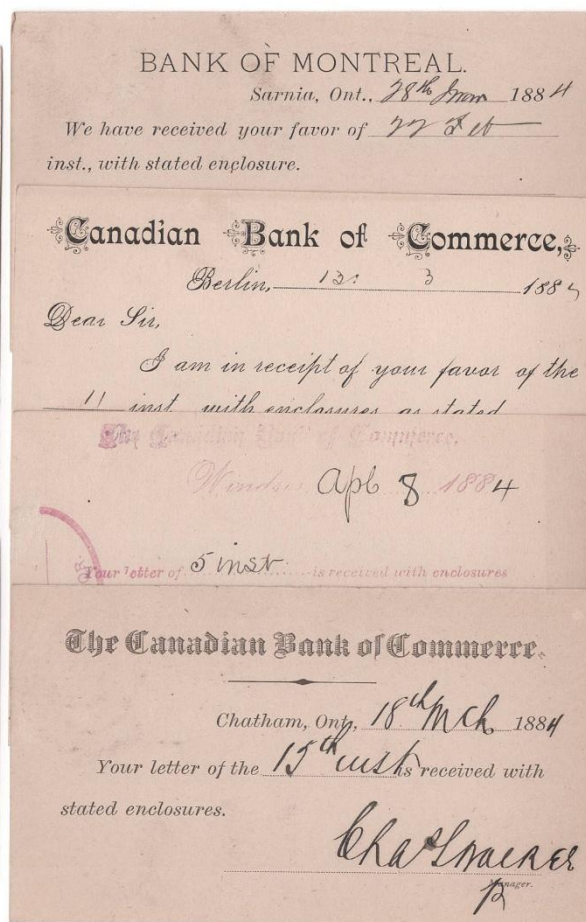 BANK OF MONTREAL.
Sarnia, Ont., 28th 1884
We have received your favor of 22 Feb
inst., with stated enclosure.
Canadian Bank of Commerce,
Berlin, 13: 3 188
Dear Sir,
I am in receipt of your favor of the
11 inst. with enclosures as stated
The Canadian Bank of Commerce.
Windsor Apl 8 1884
Your letter of 5 inst is received with enclosures
The Canadian Bank of Commerce.
Chatham, Ont., 18th Mch 1884
Your letter of the 15th inst is received with
stated enclosures.
Manager.